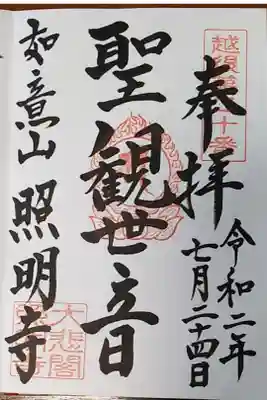 奉拝
令和二年
七月二十四日
聖観世音
如意山 照明寺
大悲閣